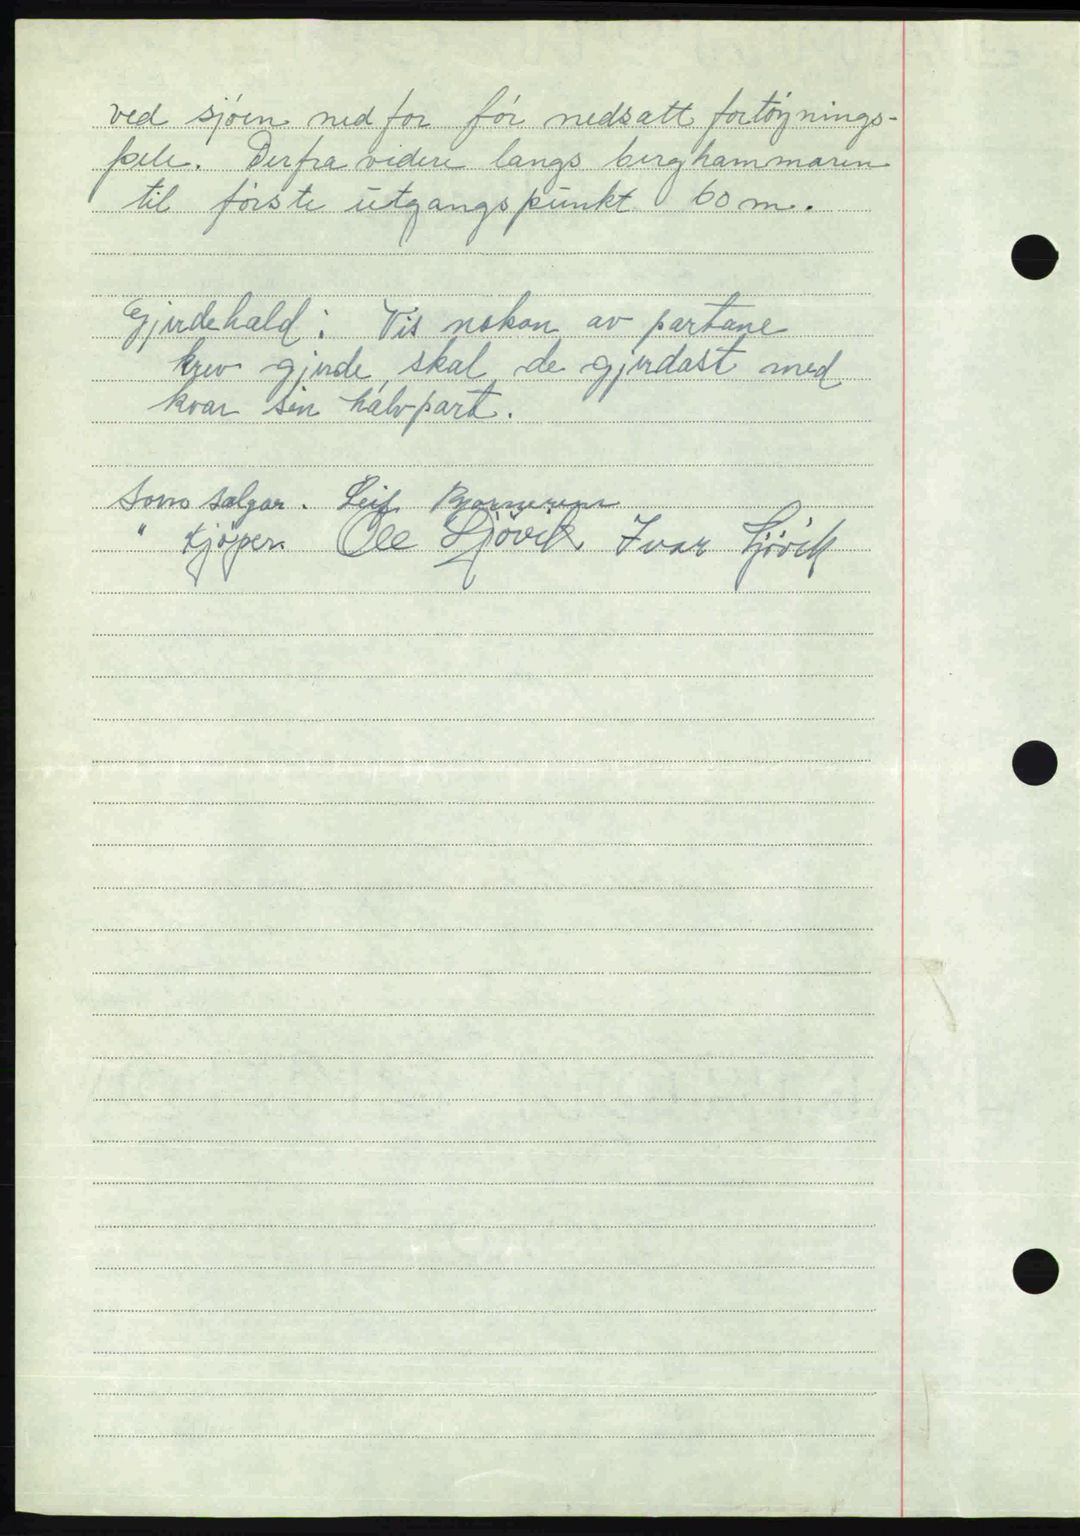 ved sjøen ned for før nedsatt fortøynings-
pele. Derfra videre langs berghammaren
til første utgangspunkt 60 m.
Gjerdehald: Vis nokon av partane
krev gjerde, skal de gjerdast med
kvar sin halvpart.
Som selgar. Leif
" kjøper Ole Sjøvik, Ivar Sjøvik